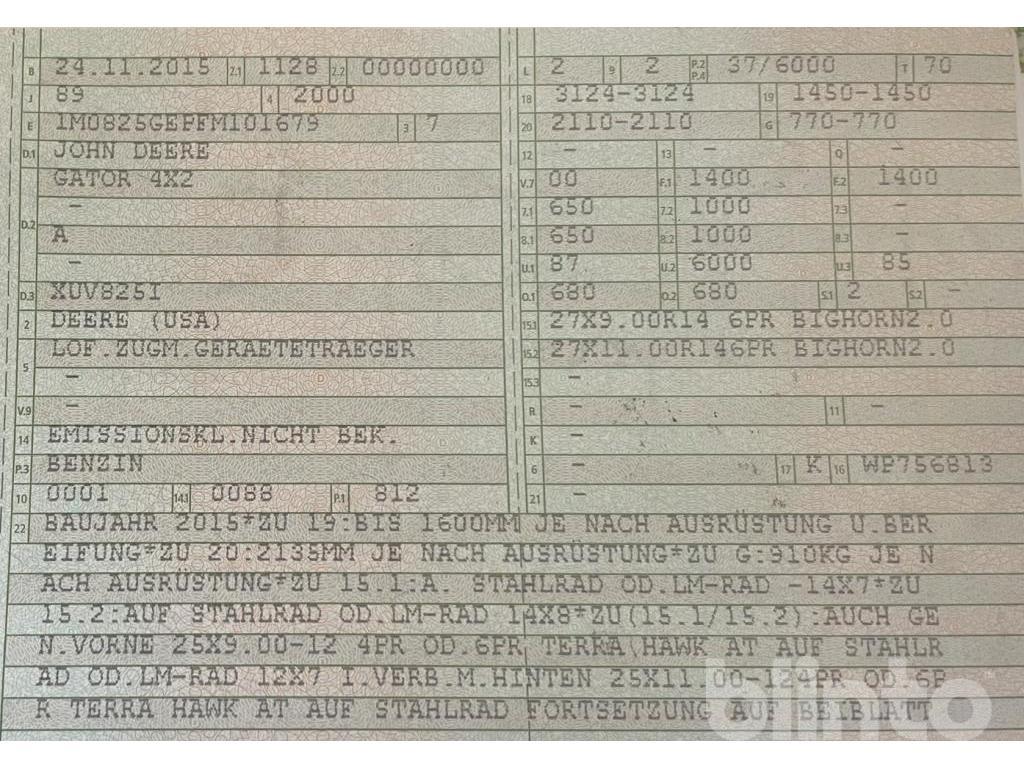 B 24.11.2015 2.1 1128 2.2 00000000
J 89 4 2000
E 1M0825GEPFM101679 3 7
D.1 JOHN DEERE
GATOR 4X2
–
D.2 A
–
D.3 XUV825I
2 DEERE (USA)
5 LOF.ZUGM.GERAETETRAEGER
–
V.9 –
14 EMISSIONSKL.NICHT BEK.
P.3 BENZIN
10 0001 14.1 0088 P.1 812
L 2 9 2 P.2 P.4 37/6000 T 70
18 3124-3124 19 1450-1450
20 2110-2110 G 770-770
12 – 13 – Q –
V.7 00 F.1 1400 F.2 1400
7.1 650 7.2 1000 7.3 –
8.1 650 8.2 1000 8.3 –
U.1 87 U.2 6000 U.3 85
O.1 680 O.2 680 S.1 2 S.2 –
15.1 27X9.00R14 6PR BIGHORN2.0
15.2 27X11.00R146PR BIGHORN2.0
15.3 –
R – 11 –
K –
6 – 17 K 16 WP756813
21 –
22 BAUJAHR 2015*ZU 19:BIS 1600MM JE NACH AUSRÜSTUNG U.BER
EIFUNG*ZU 20:2135MM JE NACH AUSRÜSTUNG*ZU G:910KG JE N
ACH AUSRÜSTUNG*ZU 15.1:A. STAHLRAD OD.LM-RAD -14X7*ZU
15.2:AUF STAHLRAD OD.LM-RAD 14X8*ZU(15.1/15.2):AUCH GE
N.VORNE 25X9.00-12 4PR OD.6PR TERRA HAWK AT AUF STAHLR
AD OD.LM-RAD 12X7 I.VERB.M.HINTEN 25X11.00-124PR OD.6P
R TERRA HAWK AT AUF STAHLRAD FORTSETZUNG AUF BEIBLATT
blinto